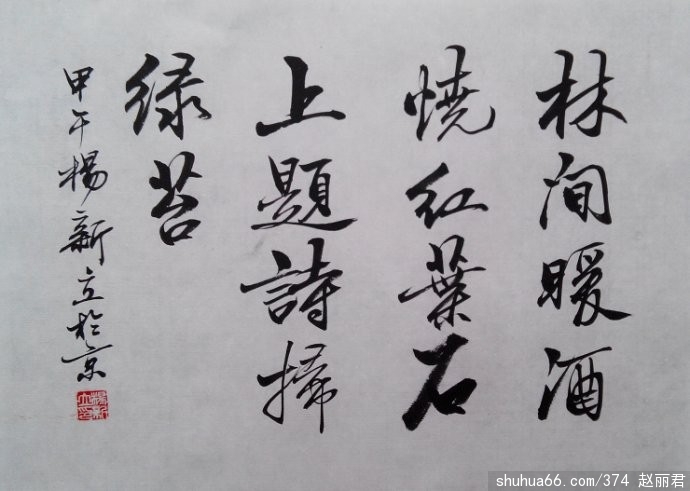 林间暖酒
烧红葉石
上題詩掃
绿苔
甲午楊新立於京
shuhua66.com/374 赵丽君